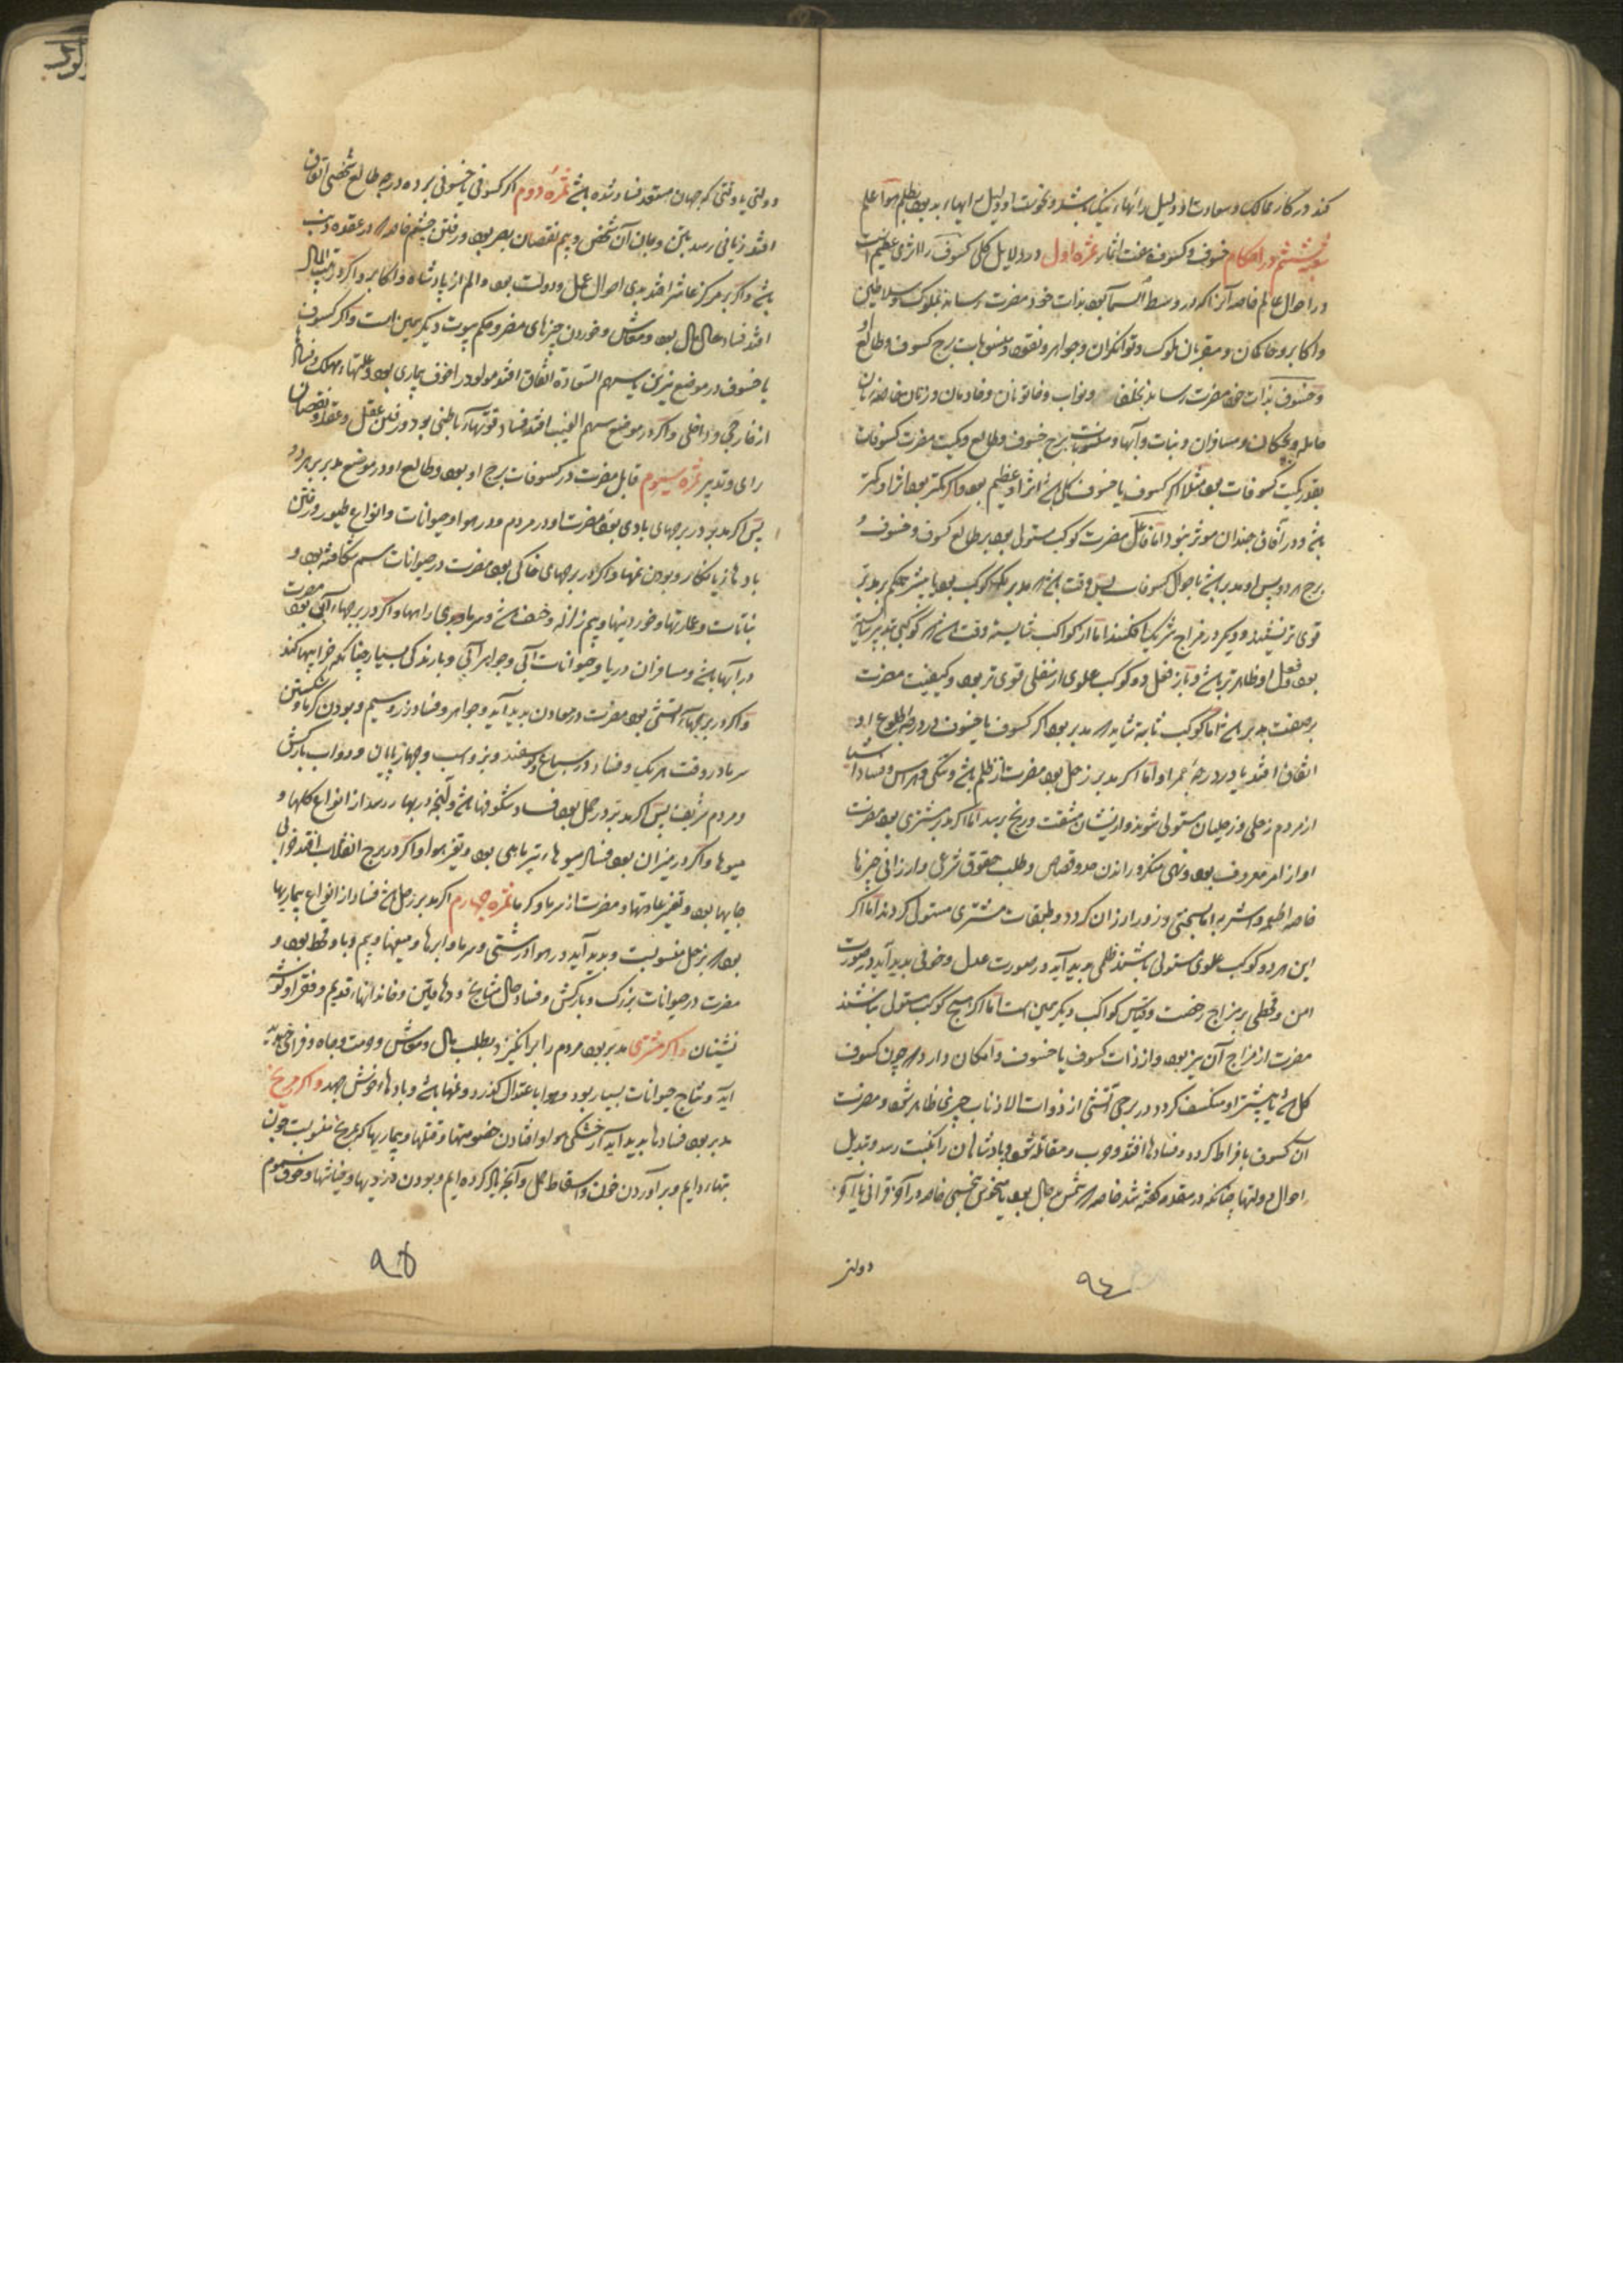 کند در کار ممالک و سعادت او دلیل را
شعبه ششم در احکام خسوف و کسوف و هفت اثمار ثمره اول در دلایل کلی کسوف را اثری عظیم است
در احوال عالم خاصه آنرا که در وسط السما بود بذات خود مضرت رساند بملوک و سلاطین
و اکابر و حاکمان و مقربان ملوک و توانکران و جواهر و نقود و منسوبات برج کسوف و طالع او
و خسوف بذات خود مضرت رساند بخلفا و نواب و خاتونان و خادمان و زنان خاصه زنان
حامله و بچکان و مسافران و نبات و آبها و منسوبات برج خسوف و طالع و کمیت مضرت کسوفات
بقدر کمیت کسوفات بود مثلا اکر کسوف یا خسوف کلی باشد اثر او عظیم بود و اکر کمتر بود اثر او کمتر
باشد و در آفاق چندان موثر نبود اما فاعل مضرت کوکب مستولی بود بر طالع کسوف و خسوف و
برج هر دو پس او مدبر باشد باحوال کسوفات پس وقت باشد که مدبر یک کوکب بود یا بیشتر حکم بر مدبر
قوی تر نشیند و دیکر در مزاج شریک افکنند اما از کواکب ثابته وقت باشد که کوکبی تدبیر
بود و فعل او ظاهرتر باشد و باز فعل دو کوکب علوی از سفلی قوی تر بود و کیفیت مضرت
بر صفت مدبر باشد اما کوکب ثابته نشاید که مدبر بود اکر کسوف یا خسوف در درجه طلوع او
اتفاق افتد یا در درجه ممر او اما اکر مدبر زحل بود مضرت از ظلم باشد و تنکی و هراس و فساد اشیا
از مردم زحلی و زحلیان مستولی شوند و از ایشان مشقت و رنج رسد اما اکر مدبر مشتری بود مضرت
او از امر معروف بود و نهی منکر و راندن حد و قصاص و طلب حقوق شرعی و ارزانی چیزها
خاصه اطعمه و اشربه اما بسختی و زور ارزان کردد و طبقات مشتری مستولی کردند اما اکر
این هر دو کوکب علوی مستولی باشند ظلمی پدید آید در صورت عدل و خوفی پدید آید در صورت
امن و قحطی بر مزاج رخصت و قیاس کواکب دیکر همین است اما اکر هیچ کوکب مستولی نباشند
مضرت از مزاج آن برج بود و از ذات کسوف یا خسوف و امکان دارد که چون کسوف
کل باشد یا بیشتر او منکسف کردد در برجی آتشی از ذوات الاذناب چیزی ظاهر شود و مضرت
آن کسوف بافراط کردد و فسادها افتد و حرب و مقاتله شود و پادشاهان را نکبت رسد و تبدیل
احوال دولتها چنانکه در مقدمه کفته شد خاصه که شمس بد حال بود یا منحوس بنحسی خاصه در آخر قرانی یا آخر
دولتی
۹۴
دولتی یا وقتی که جهان مستعد فساد شده باشد ثمره دوم اکر کسوفی یا خسوفی بر ده درجه طالع شخصی اتفاق
افتد زیانی رسد بتن و جان آن شخص و بیم نقصان بصر بود و رفتن چشم خاصه که در عقده ذنب
باشد و اکر بر مرکز عاشر افتد بدی احوال عمل و دولت بود و الم از پادشاه و اکابر و اکر در بیت المال
افتد فساد حال مال بود و معاش و خوردن چیزهای مضر و حکم بیوت دیکر همین است و اکر کسوف
یا خسوف در موضع نیرین یا سهم السعادة اتفاق افتد مولود را خوف بیماری بود و علتهاء مهلک و فساد
از خارجی و داخلی و اکر در موضع سهم الغیب افتد فساد قوتهاء باطنی بود و رفتن عقل و عقد و نقصان
رای و تدبیر ثمره سیوم قابل مضرت در کسوفات برج او بود و طالع او و در موضع مدبر بر هر دو
پس اکر مدبر در برجهای بادی بود مضرت او در مردم و در هوا و حیوانات و انواع طیور و رفتن
بادهاء زیانکار و بودن تمها و اکر در برجهای خاکی بود مضرت در حیوانات سم شکافته بود و
نباتات و عمارتها و خوردنیها و بیم زلزله و خسف باشد و سرما و بدی راهها و اکر در برجهاء آبی بود مضرت
در آبها باشد و مسافران دریا و حیوانات آبی و جواهر آبی و بارندکی بسیار چنانکه خرابیها کند
و اکر در برجهاء آتشی بود مضرت در معادن پدید آید و جواهر و فساد زر و سیم و بودن کرما و شکستن
سرما در وقت هر یک و فساد در سباع و کوسفند و بز و اسب و چهار پایان و دواب بارکش
و مردم شریف پس اکر مدبر در حمل بود فساد شکوفها باشد و آنچه در بهار رسد از انواع کلها و
میوها و اکر در میزان بود فساد میوهاء تیرماهی بود و تغیر هوا و اکر در برج انقلاب افتد خرابی
جایها بود و تغیر عادتها و مضرت از سرما و کرما ثمره چهارم اکر مدبر زحل باشد فساد از انواع بیماریها
بود که بزحل منسوبست و پدید آید در هوا درشتی و سرما و ابرها و میغها و بیم وبا و قحط بود و
مضرت در حیوانات بزرک و بارکش و فساد حال مشایخ و دهاقین و خاندانهاء قدیم و فقرا و کوشه
نشینان و اکر مشتری مدبر بود مردم را برانکیزد بطلب مال و معاش و حرمت و جاه و فراخی پدید
آید و نتاج حیوانات بسیار بود و هوا باعتدال کذرد و نمها باشد و بادهاء خوش جهد و اکر مریخ
مدبر بود فسادها پدید آید از خشکی هوا و افتادن خصومتها و فتنها و بیماریها که بمریخ منسوبست چون
تبهاء دایم و برآوردن خون و اسقاط حمل و آنچه یاد کرده ایم و بودن دزدیها و خیانتها و حرق سموم
۹۵